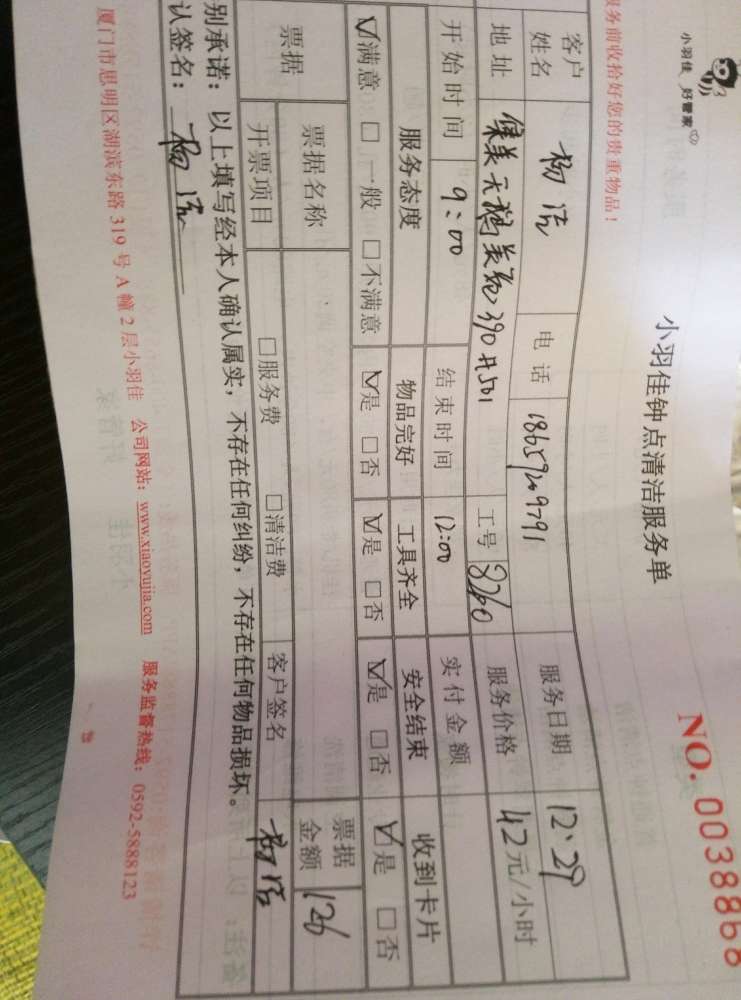 小羽佳 好管家
小羽佳钟点清洁服务单
NO. 0038868
务前收拾好您的贵重物品！
客户姓名 电话 18659209791 服务日期 12.29
地址 集美天福美苑390#501 工号 8260 服务价格 42元/小时
开始时间 9:00 结束时间 12:00 实付金额
服务态度 物品完好 工具齐全 安全结束 收到卡片
☑满意 □一般 □不满意 ☑是 □否 ☑是 □否 ☑是 □否 ☑是 □否
票据 票据名称 票据金额 126
开票项目 □服务费 □清洁费 客户签名
别承诺：以上填写经本人确认属实，不存在任何纠纷，不存在任何物品损坏。
认签名：
厦门市思明区湖滨东路 319 号 A 幢 2 层小羽佳 公司网站：www.xiaoyujia.com 服务监督热线：0592-5888123